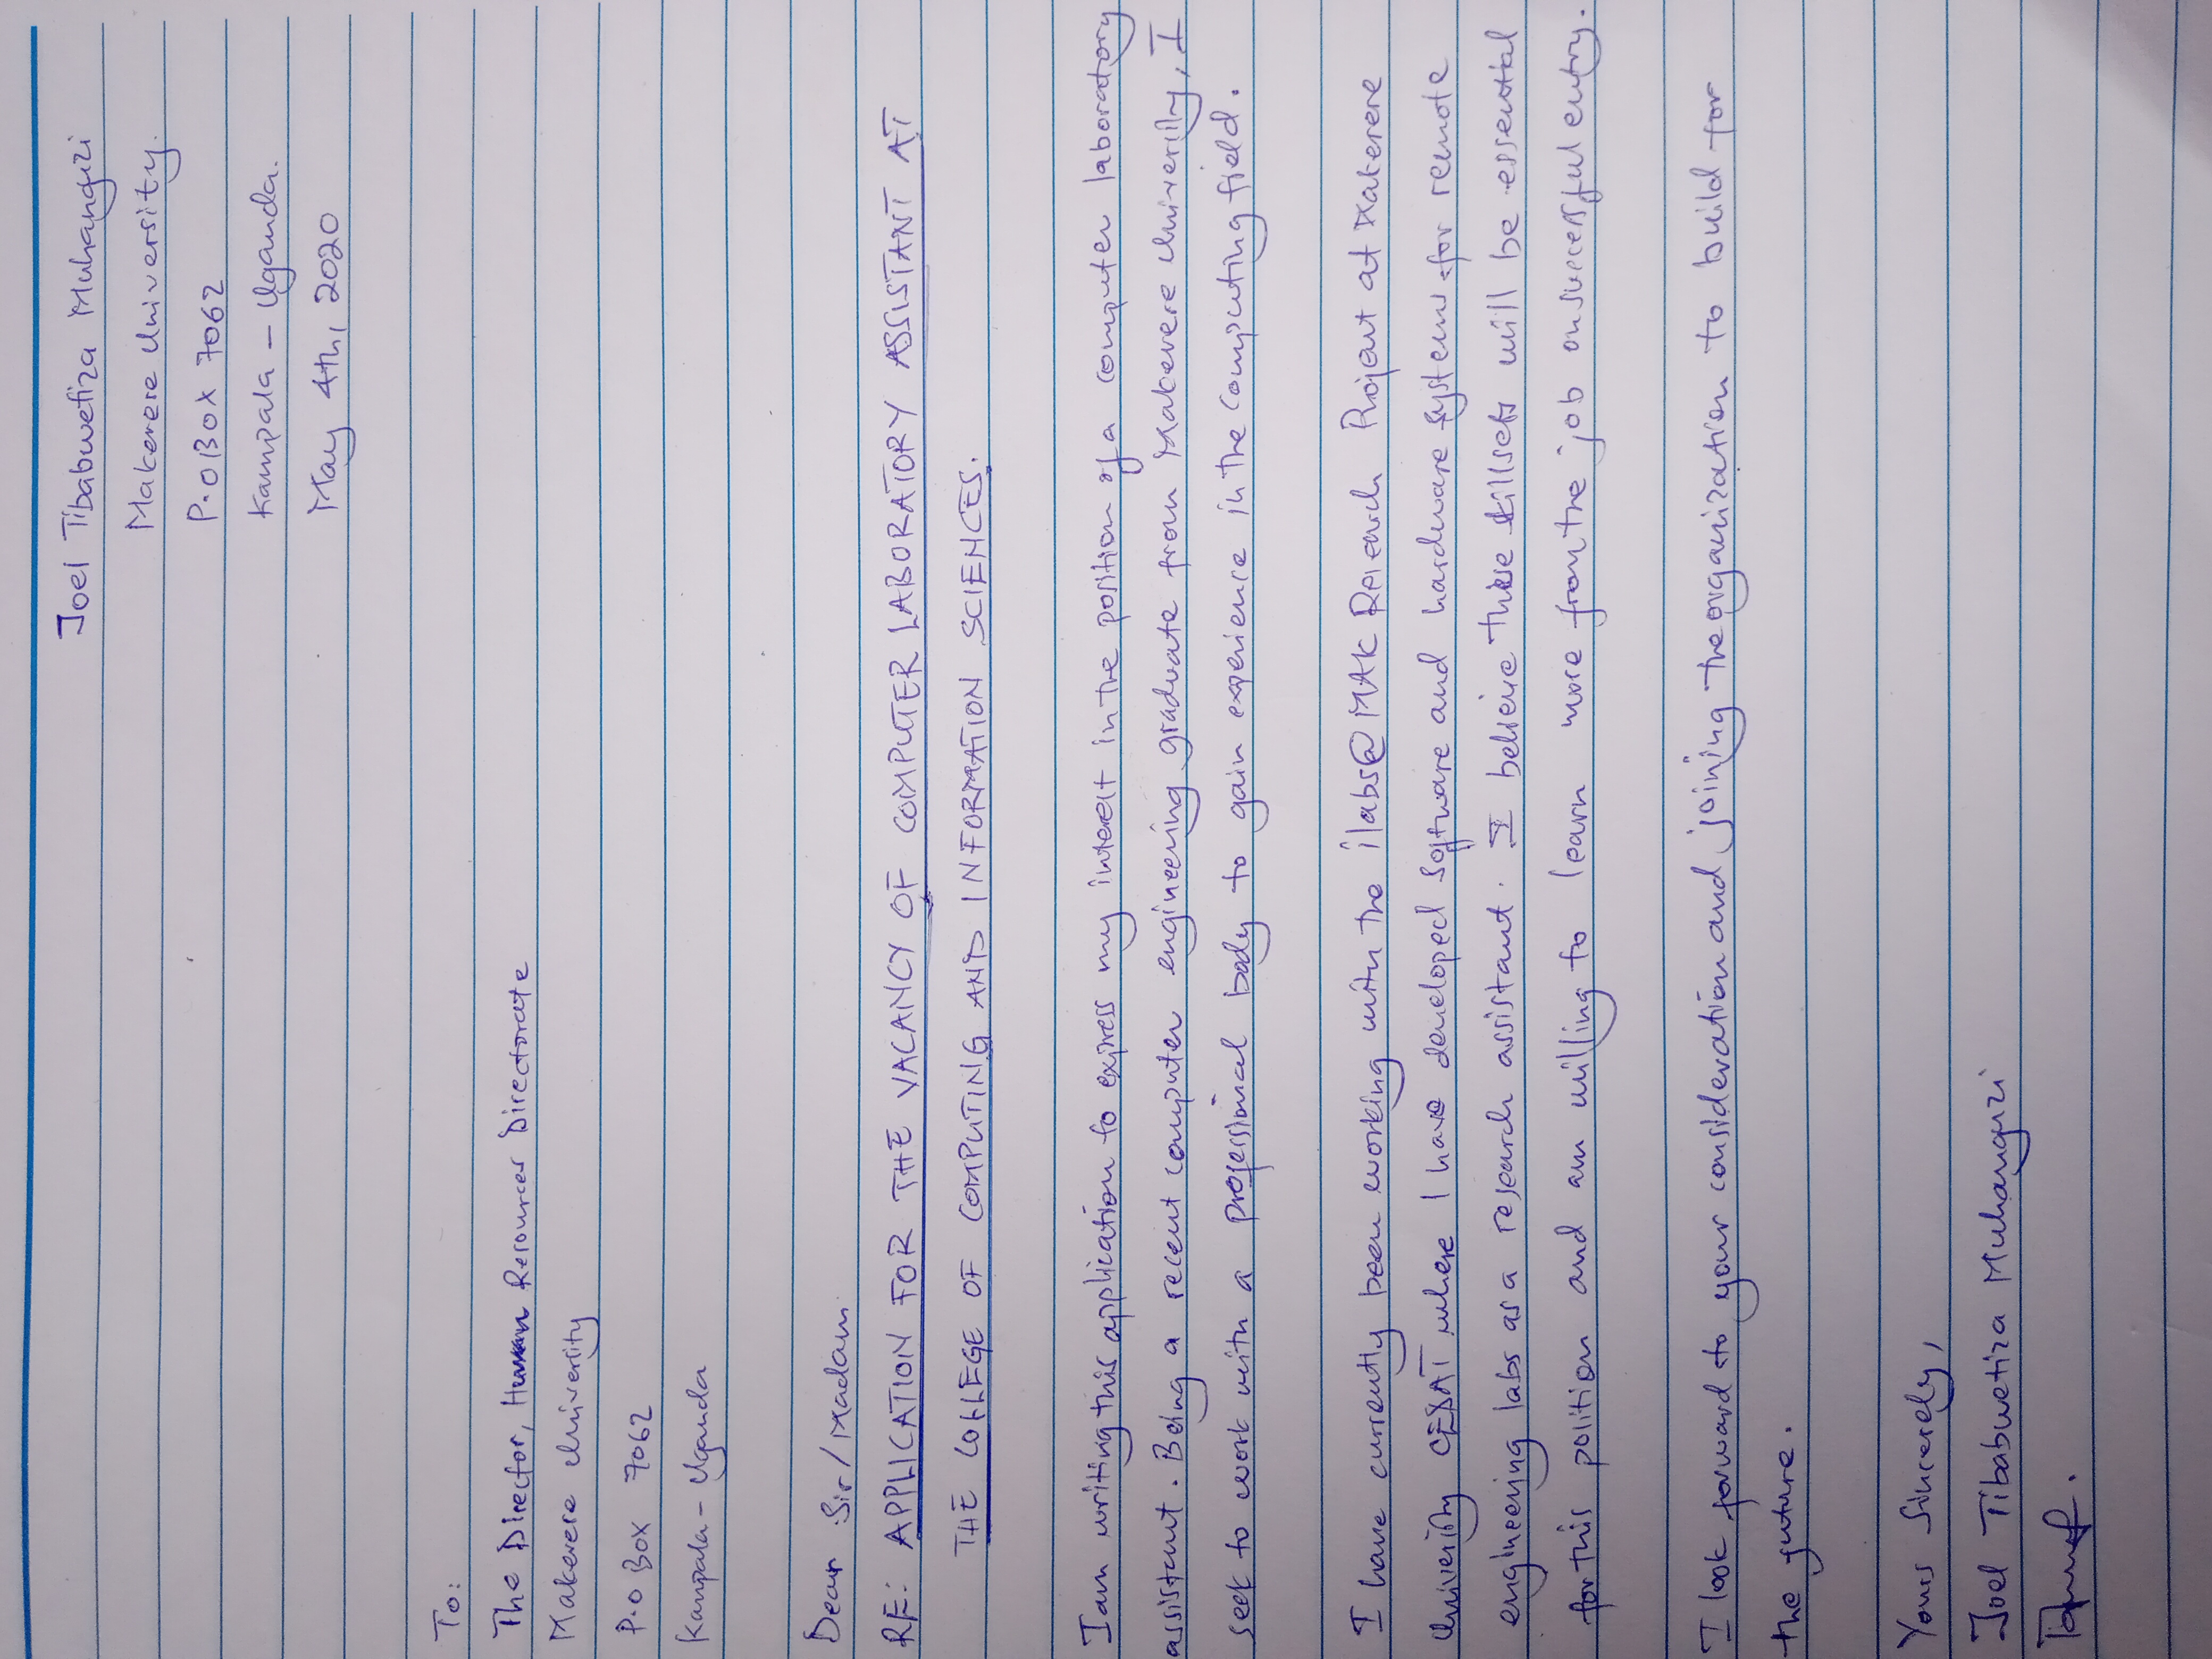 Joel Tibabwetiza Muhanguzi
Makerere University.
P.O BOX 7062
Kampala - Uganda.
May 4th, 2020
To:
The Director, Human Resources Directorate
Makerere University
P.O Box 7062
Kampala - Uganda
Dear Sir/Madam
RE: APPLICATION FOR THE VACANCY OF COMPUTER LABORATORY ASSISTANT AT
THE COLLEGE OF COMPUTING AND INFORMATION SCIENCES.
I am writing this application to express my interest in the position of a computer laboratory
assistant. Being a recent computer engineering graduate from Makerere University, I
seek to work with a professional body to gain experience in the computing field.
I have currently been working with the ilabs@MAK Research Project at Makerere
University CEDAT where I have developed software and hardware systems for remote
engineering labs as a research assistant. I believe these skillsets will be essential
for this position and am willing to learn more from the job on successful entry.
I look forward to your consideration and joining the organization to build for
the future.
Yours Sincerely,
Joel Tibabwetiza Muhanguzi